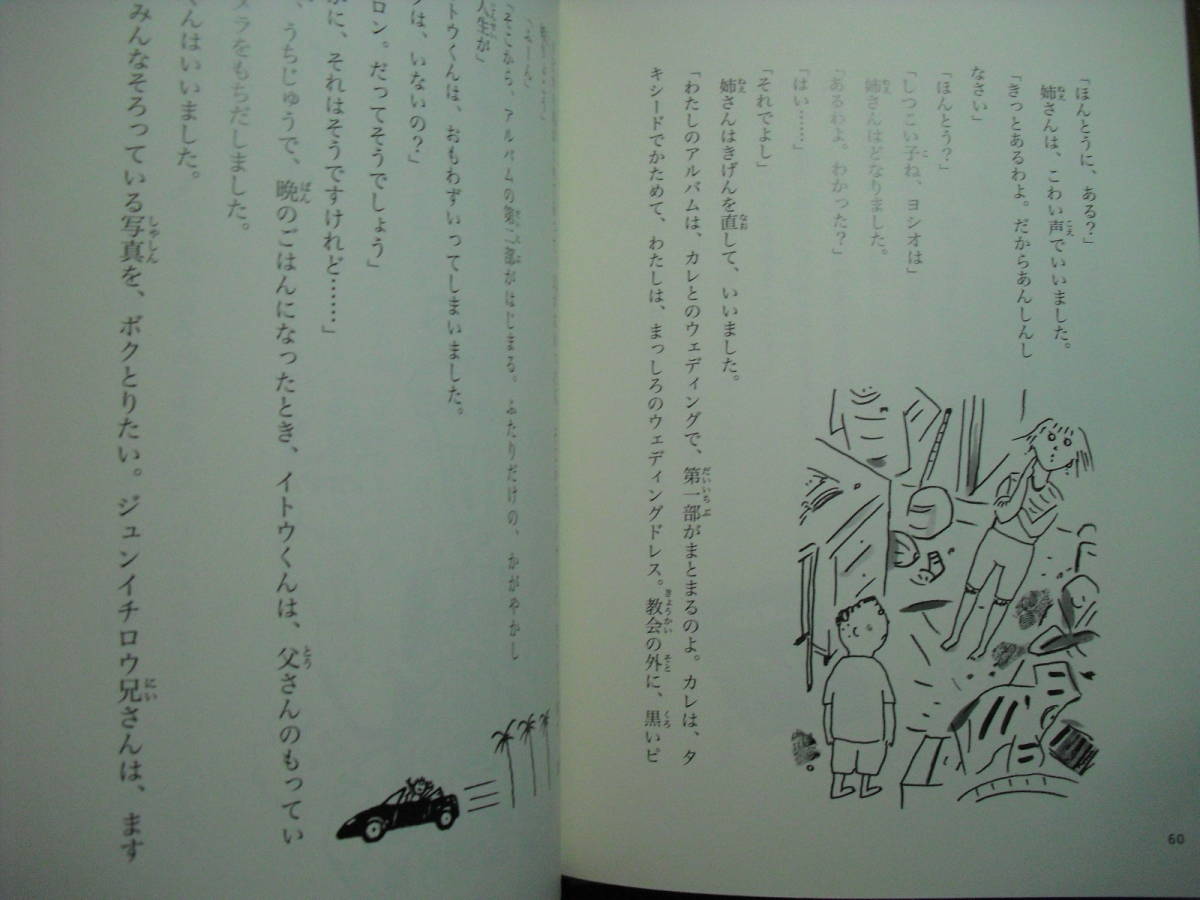 「ほんとうに、ある？」
姉さんは、こわい声でいいました。
「きっとあるわよ。だからあんしんし
なさい」
「ほんとう？」
「しつこい子ね、ヨシオは」
姉さんはどなりました。
「あるわよ。わかった？」
「はい……」
「それでよし」
姉さんはきげんを直して、いいました。
「わたしのアルバムは、カレとのウェディングで、第一部がまとまるのよ。カレは、タ
キシードでかためて、わたしは、まっしろのウェディングドレス。教会の外に、黒いピ
60
「ふーん」
「そこから、アルバムの第二部がはじまる。ふたりだけの、かがやかし
人生が」
トウくんは、おもわずいってしまいました。
は、いないの？」
ロン。だってそうでしょう」
に、それはそうですけれど……」
、うちじゅうで、晩のごはんになったとき、イトウくんは、父さんのもってい
メラをもちだしました。
くんはいいました。
みんなそろっている写真を、ボクとりたい。ジュンイチロウ兄さんは、ます